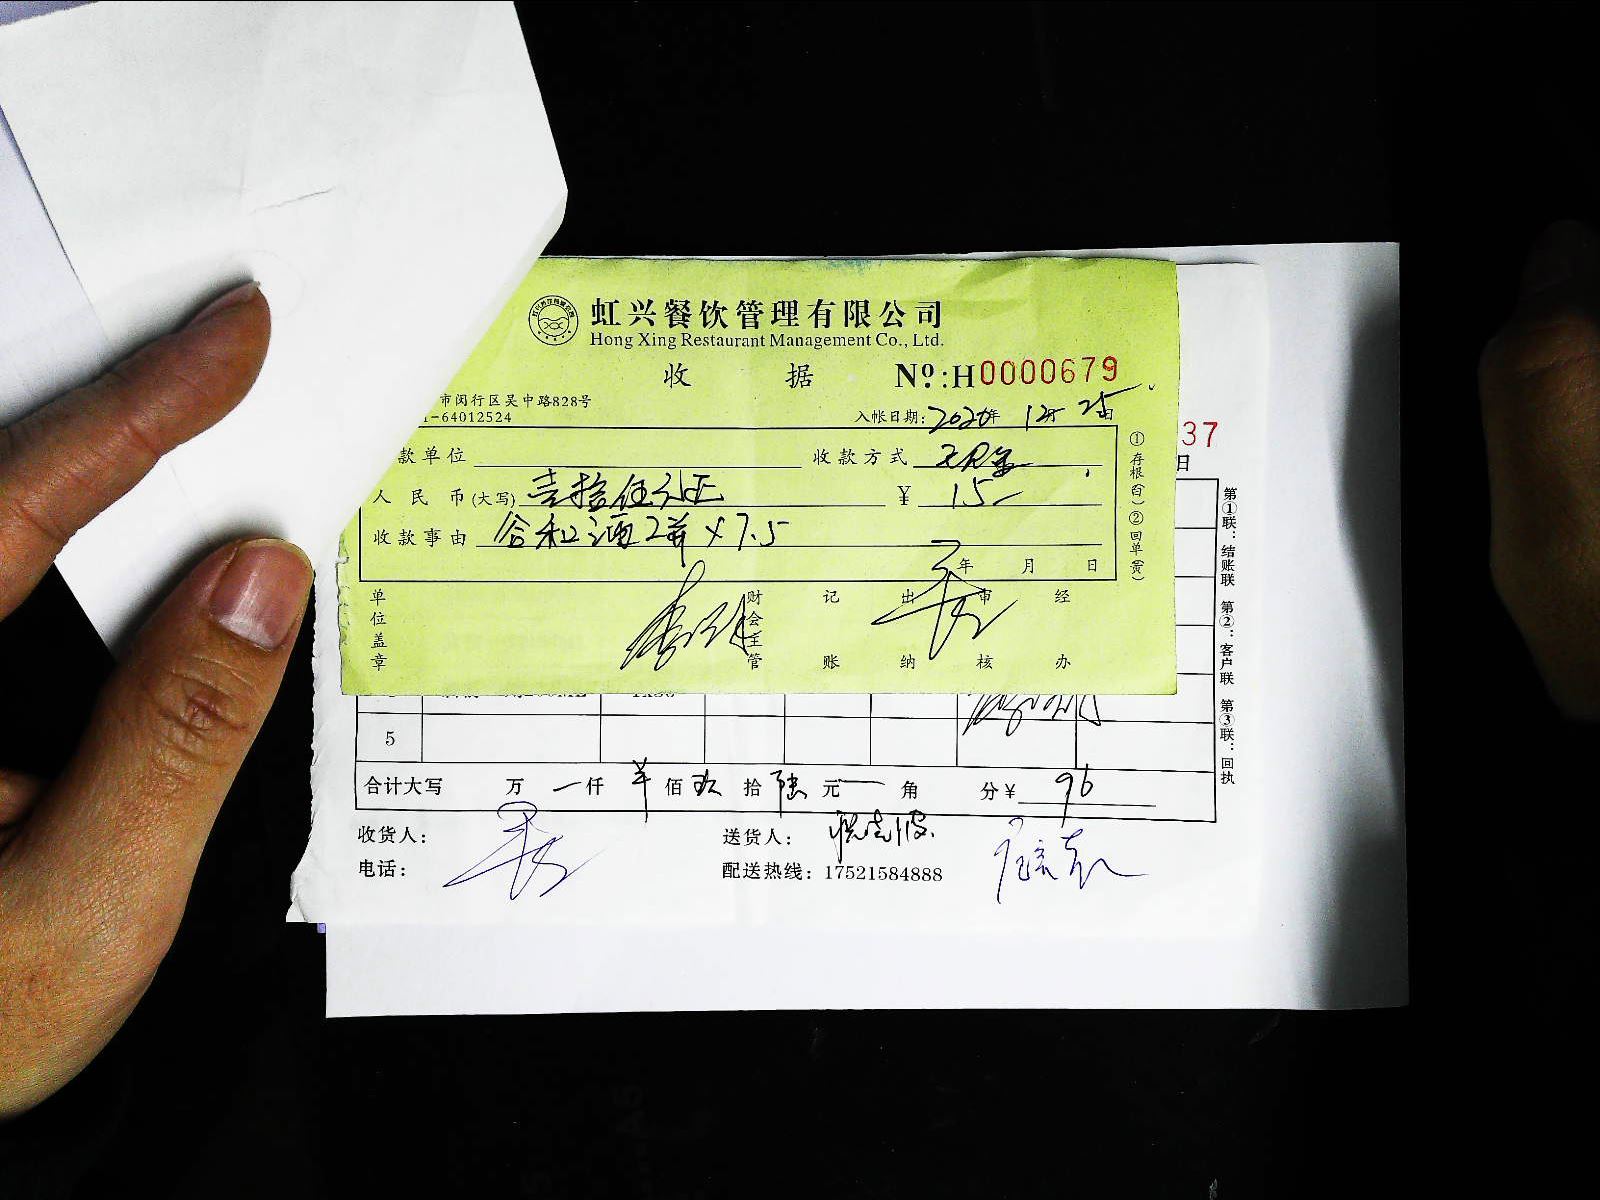 虹兴餐饮管理有限公司
Hong Xing Restaurant Management Co., Ltd.
收 据 Nº:H0000679
市闵行区吴中路828号
1-64012524
入帐日期: 2020年 12月 25日
款单位 收款方式
人民币(大写) 壹拾伍元正 ¥ 15
收款事由 合和酒2瓶×7.5
年 月 日
单位盖章 财会主管 记账 出纳 审核 经办
①存根(白) ②回单(黄)
37
日
第①联:结账联 第②:客户联 第③联:回执
5
合计大写 万 一仟 佰玖拾陆元 角 分¥ 96
收货人: 送货人:
电话: 配送热线: 17521584888